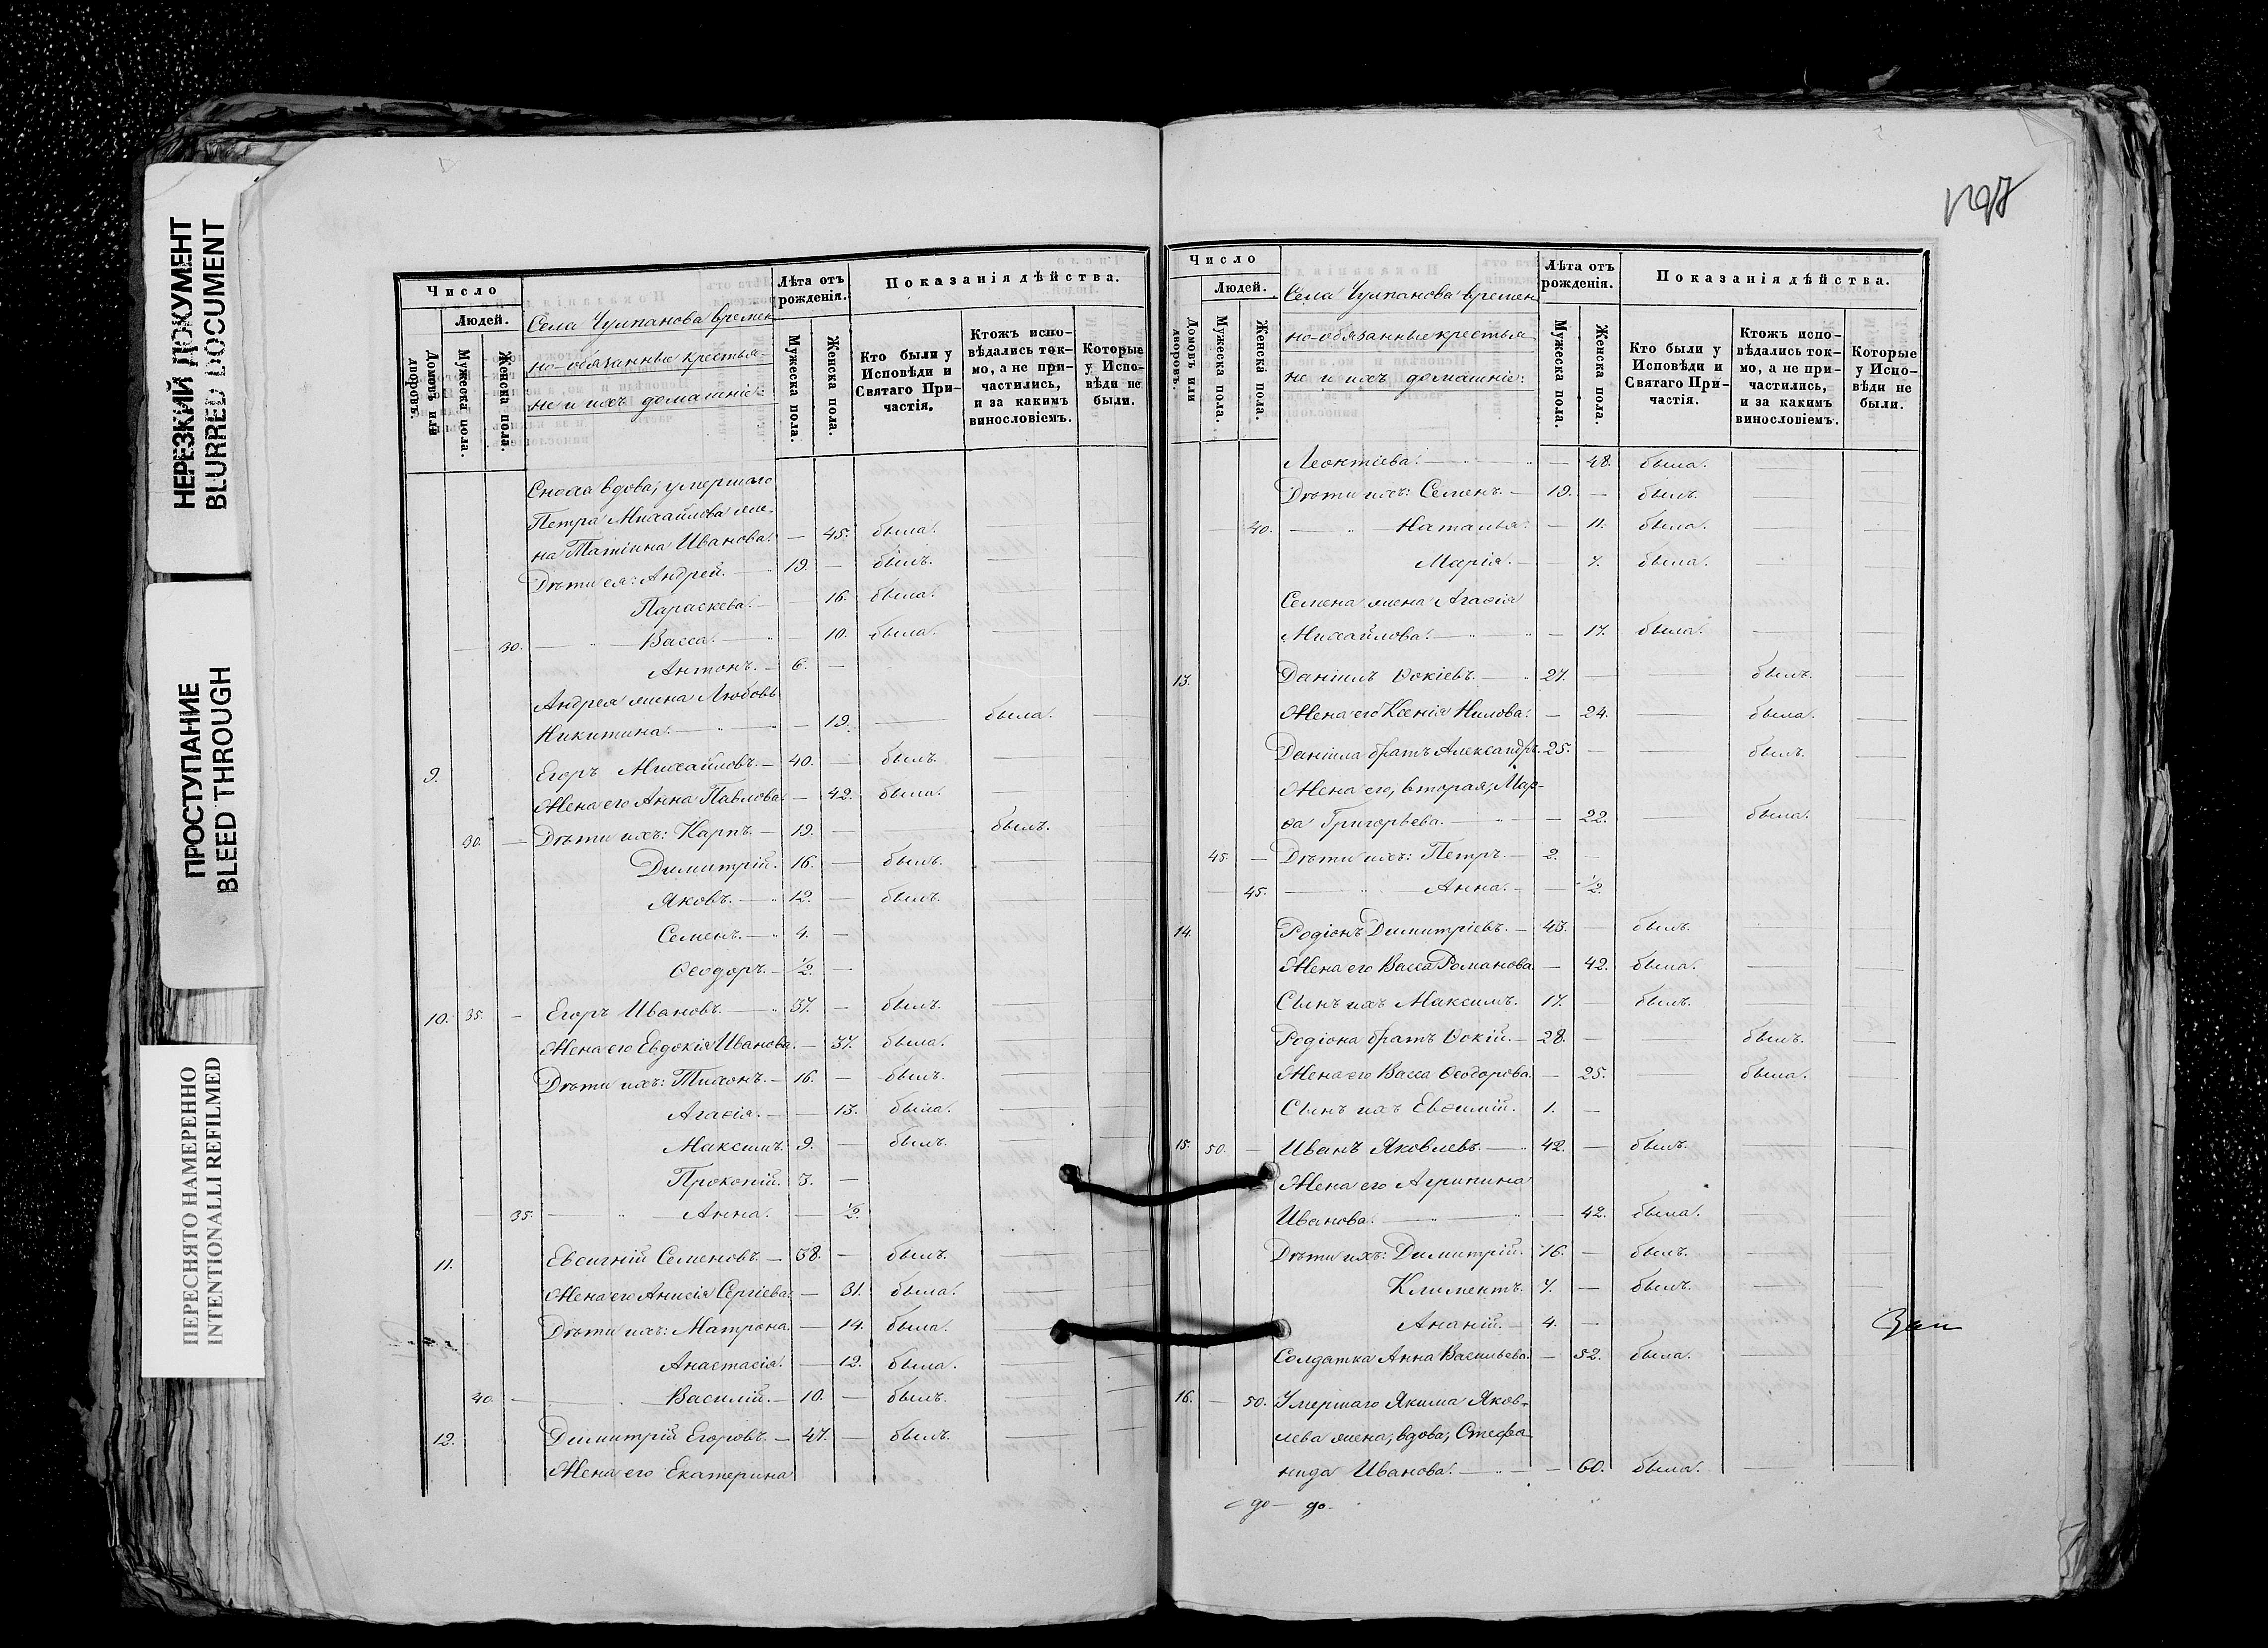 НЕРЕЗКИЙ ДОКУМЕНТ
BLURRED DOCUMENT
ПРОСТУПАНИЕ
BLEED THROUGH
ПЕРЕСНЯТО НАМЕРЕННО
INTENTIONALLI REFILMED
Число
Людей.
Домовъ или дворовъ.
Мужеска пола.
Женска пола.
Села Чулпанова времен
но-обязанные крестья-
не и ихъ домашніе:
Лѣта отъ рожденія.
Мужеска пола.
Женска пола.
Показанія дѣйства.
Кто были у Исповѣди и Святаго При-частія.
Ктожъ испо-вѣдались ток-мо, а не при-частились, и за какимъ винословіемъ.
Которые у Испо-вѣди не были.
Сноха вдова, умершаго
Петра Михайлова же-
на Татіана Иванова. — 45. была.
Дѣти ея: Андрей. — 19. — былъ.
Параскева. — 16. была.
30. — Васса. — 10. была.
Антонъ. — 6. —
Андрея жена Любовь
Никитина. — 19. — была.
9. Егоръ Михайловъ. — 40. былъ.
Жена его Анна Павлова. — 42. была.
30. — Дѣти ихъ: Карпъ. — 19. — былъ.
Димитрій. 16. — былъ.
Яковъ. — 12. — былъ.
Семенъ. — 4. —
Ѳеодоръ. — ½. —
10. 35. — Егоръ Ивановъ. — 37. — былъ.
Жена его Евдокія Иванова. — 37. была.
Дѣти ихъ: Тихонъ. — 16. — былъ.
Агаѳія. — 13. была.
Максимъ. 9. — былъ.
Прокопій. 3. —
35. — Анна. — ½.
11. Евсигній Семеновъ. — 38. — былъ.
Жена его Анисія Сергіева. — 31. была.
Дѣти ихъ: Матрона. — 14. была.
Анастасія. — 12. была.
40. — Василій. — 10. — былъ.
12. Димитрій Егоровъ. — 47. — былъ.
Жена его Екатерина
Число
Людей.
Домовъ или дворовъ.
Мужеска пола.
Женска пола.
Села Чулпанова времен
но-обязанные крестья
не и ихъ домашніе:
Лѣта отъ рожденія.
Мужеска пола.
Женска пола.
Показанія дѣйства.
Кто были у Исповѣди и Святаго При-частія.
Ктожъ испо-вѣдались ток-мо, а не при-частились, и за какимъ винословіемъ.
Которые у Испо-вѣди не были.
Леонтіева. — 48. была.
Дѣти ихъ: Семенъ. — 19. — былъ.
40. — Наталья. — 11. была.
Марія. — 7. была.
Семена жена Агаѳія
Михайлова. — 17. была.
13. Даніилъ Ѳокіевъ. — 27. — былъ.
Жена его Ксенія Нилова. — 24. — была.
Даніила братъ Александръ. 25. — былъ.
Жена его, вторая, Мар-
ѳа Григорьева. — 22. была.
45. — Дѣти ихъ: Петръ. — 2. —
45. — Анна. — ½.
14. Родіонъ Димитріевъ. — 43. — былъ.
Жена его Васса Романова. — 42. была.
Сынъ ихъ Максимъ. 17. — былъ.
Родіона братъ Ѳокій. — 28. — былъ.
Жена его Васса Ѳеодорова. — 25. — была.
Сынъ ихъ Евѳимій. 1. —
15. 50. — Иванъ Яковлевъ. — 42. — былъ.
Жена его Агрипина
Иванова. — 42. была.
Дѣти ихъ: Димитрій. 16. — былъ.
Климентъ. 7. — былъ.
Ананій. — 4. —
Солдатка Анна Васильева. — 52. была.
16. — 50. Умершаго Якима Яков-
лева жена, вдова, Стефа
нида Иванова. — 60. была.